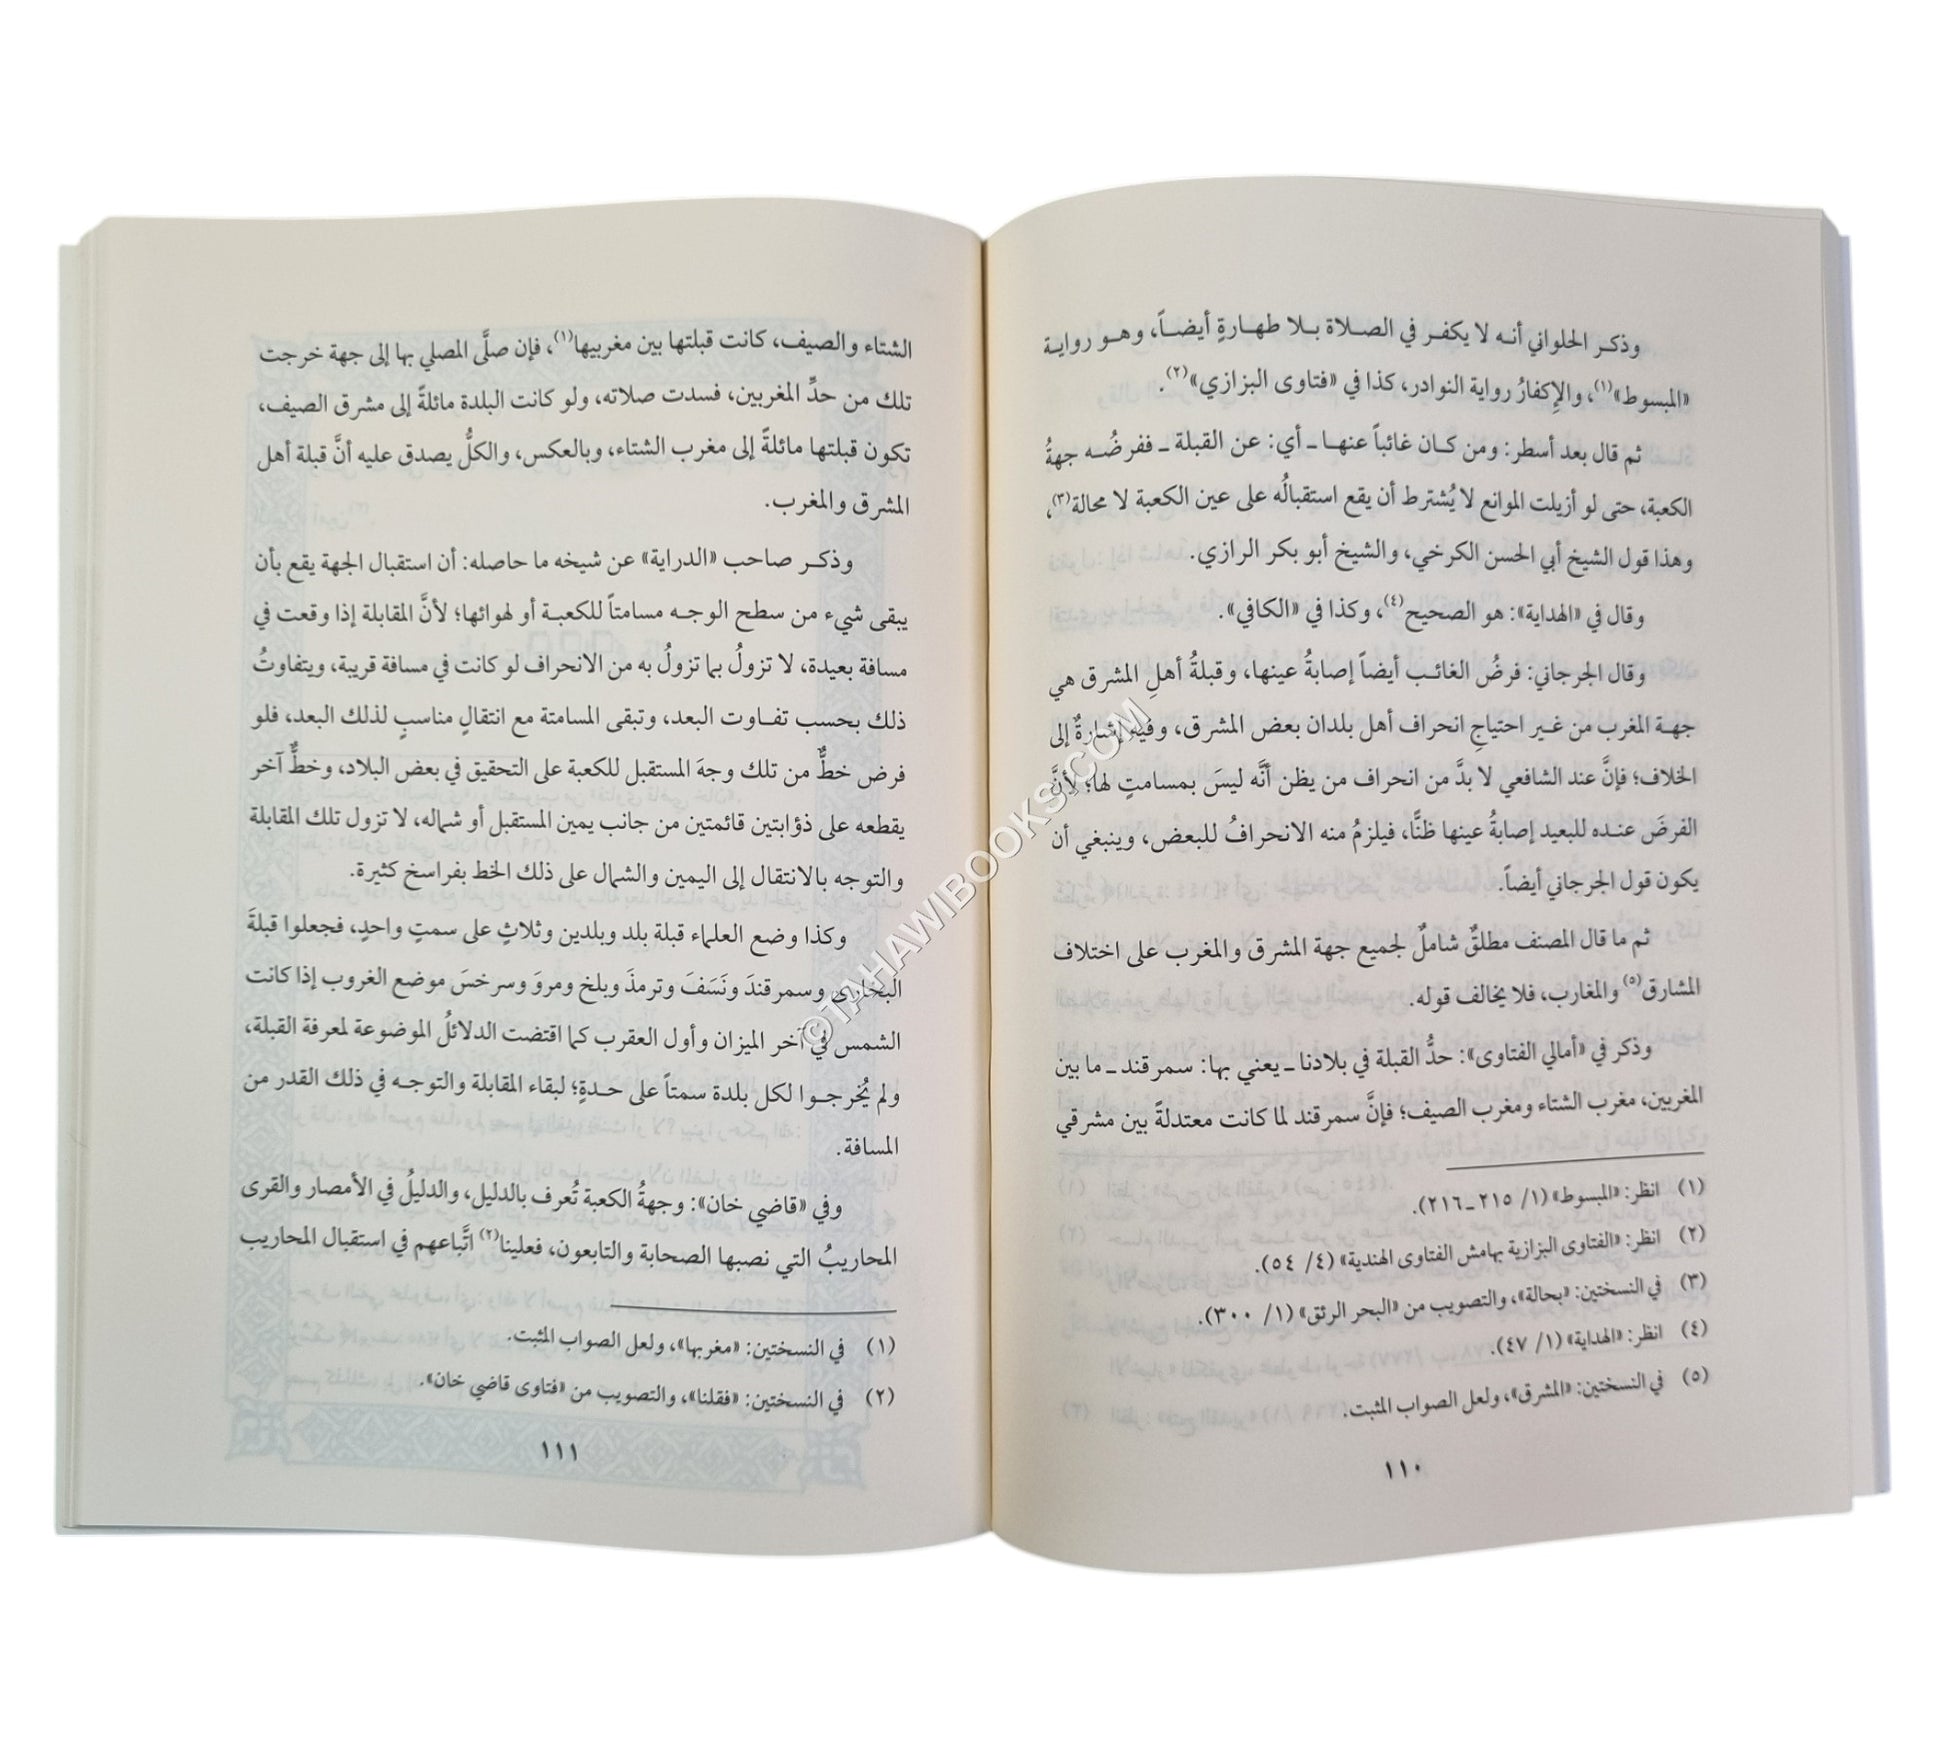 وذكر الحلواني أنه لا يكفر في الصلاة بلا طهارةٍ أيضاً، وهو رواية
«المبسوط»(١)، والإكفارُ رواية النوادر، كذا في «فتاوى البزازي»(٢).
ثم قال بعد أسطر: ومن كان غائباً عنها ـ أي: عن القبلة ـ ففرضُه جهةُ
الكعبة، حتى لو أزيلت الموانع لا يُشترط أن يقع استقبالُه على عين الكعبة لا محالة(٣)،
وهذا قول الشيخ أبي الحسن الكرخي، والشيخ أبو بكر الرازي.
وقال في «الهداية»: هو الصحيح(٤)، وكذا في «الكافي».
وقال الجرجاني: فرضُ الغائب أيضاً إصابةُ عينها، وقبلةُ أهلِ المشرق هي
جهة المغرب من غير احتياجِ انحراف أهل بلدان بعض المشرق، وفيه إشارةٌ إلى
الخلاف؛ فإنَّ عند الشافعي لا بدَّ من انحراف من يظن أنَّه ليسَ بمسامتٍ لها؛ لأنَّ
الفرضَ عنده للبعيد إصابةُ عينها ظنًّا، فيلزمُ منه الانحرافُ للبعض، وينبغي أن
يكون قول الجرجاني أيضاً.
ثم ما قال المصنف مطلقٌ شاملٌ لجميع جهة المشرق والمغرب على اختلاف
المشارق(٥) والمغارب، فلا يخالف قوله.
وذكر في «أمالي الفتاوى»: حدُّ القبلة في بلادنا ـ يعني بها: سمرقند ـ ما بين
المغربين، مغرب الشتاء ومغرب الصيف؛ فإنَّ سمرقند لما كانت معتدلةً بين مشرقي
(١) انظر: «المبسوط» (١/ ٢١٥ ـ ٢١٦).
(٢) انظر: «الفتاوى البزازية بهامش الفتاوى الهندية» (٤/ ٥٤).
(٣) في النسختين: «بحالة»، والتصويب من «البحر الرئق» (١/ ٣٠٠).
(٤) انظر: «الهداية» (١/ ٤٧).
(٥) في النسختين: «المشرق»، ولعل الصواب المثبت.
١١٠
الشتاء والصيف، كانت قبلتها بين مغربيها(١)، فإن صلَّى المصلي بها إلى جهة خرجت
تلك من حدِّ المغربين، فسدت صلاته، ولو كانت البلدة مائلةً إلى مشرق الصيف،
تكون قبلتها مائلةً إلى مغرب الشتاء، وبالعكس، والكلُّ يصدق عليه أنَّ قبلة أهل
المشرق والمغرب.
وذكر صاحب «الدراية» عن شيخه ما حاصله: أن استقبال الجهة يقع بأن
يبقى شيء من سطح الوجه مسامتاً للكعبة أو لهوائها؛ لأنَّ المقابلة إذا وقعت في
مسافة بعيدة، لا تزولُ بما تزولُ به من الانحراف لو كانت في مسافة قريبة، ويتفاوتُ
ذلك بحسب تفاوت البعد، وتبقى المسامتة مع انتقالٍ مناسبٍ لذلك البعد، فلو
فرض خطٌّ من تلك وجهَ المستقبل للكعبة على التحقيق في بعض البلاد، وخطٌّ آخر
يقطعه على ذؤابتين قائمتين من جانب يمين المستقبل أو شماله، لا تزول تلك المقابلة
والتوجه بالانتقال إلى اليمين والشمال على ذلك الخط بفراسخ كثيرة.
وكذا وضع العلماء قبلة بلد وبلدين وثلاثٍ على سمتٍ واحدٍ، فجعلوا قبلةَ
البخارى وسمرقندَ ونَسَفَ وترمذَ وبلخ ومروَ وسرخسَ موضع الغروب إذا كانت
الشمس في آخر الميزان وأول العقرب كما اقتضت الدلائلُ الموضوعة لمعرفة القبلة،
ولم يُخرجوا لكل بلدة سمتاً على حدةٍ؛ لبقاء المقابلة والتوجه في ذلك القدر من
المسافة.
وفي «قاضي خان»: وجهةُ الكعبة تُعرف بالدليل، والدليلُ في الأمصار والقرى
المحاريبُ التي نصبها الصحابة والتابعون، فعلينا(٢) اتَّباعهم في استقبال المحاريب
(١) في النسختين: «مغربها»، ولعل الصواب المثبت.
(٢) في النسختين: «فقلنا»، والتصويب من «فتاوى قاضي خان».
١١١
©TAHAWIBOOKS.COM